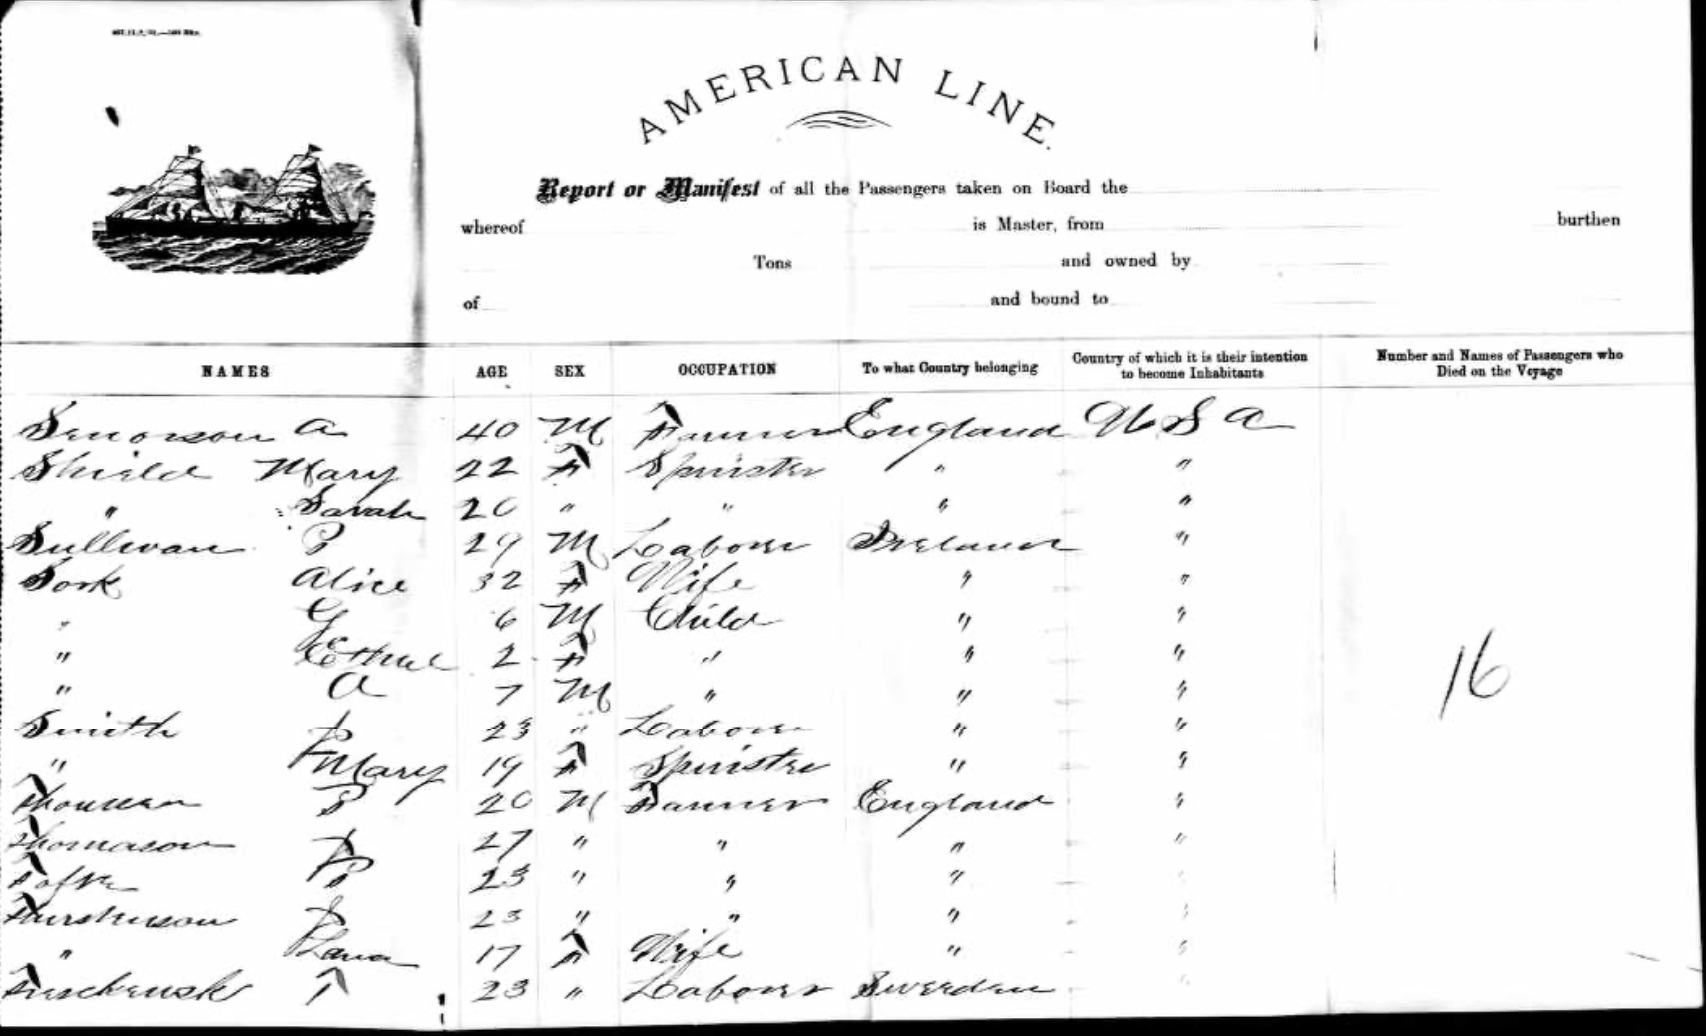 AMERICAN LINE.
Report or Manifest of all the Passengers taken on Board the
whereof is Master, from burthen
Tons and owned by
of and bound to
NAMES AGE SEX OCCUPATION To what Country belonging Country of which it is their intention to become Inhabitants Number and Names of Passengers who Died on the Voyage
A 40 M Farmer England U S A
Shield Mary 22 F Spinster " "
" Sarah 20 " " " "
Sullivan P 29 M Laborer Ireland "
York Alice 32 F Wife " "
" G 6 M Child " "
" Ethel 2 F " " "
" A 7 M " " "
Smith J 23 " Laborer " "
" Mary 19 F Spinster " "
P 20 M Farmer England "
Thomason J 27 " " " "
P 23 " " " "
J 23 " " " "
" 17 F Wife " "
T 23 " Laborer Sweeden "
16